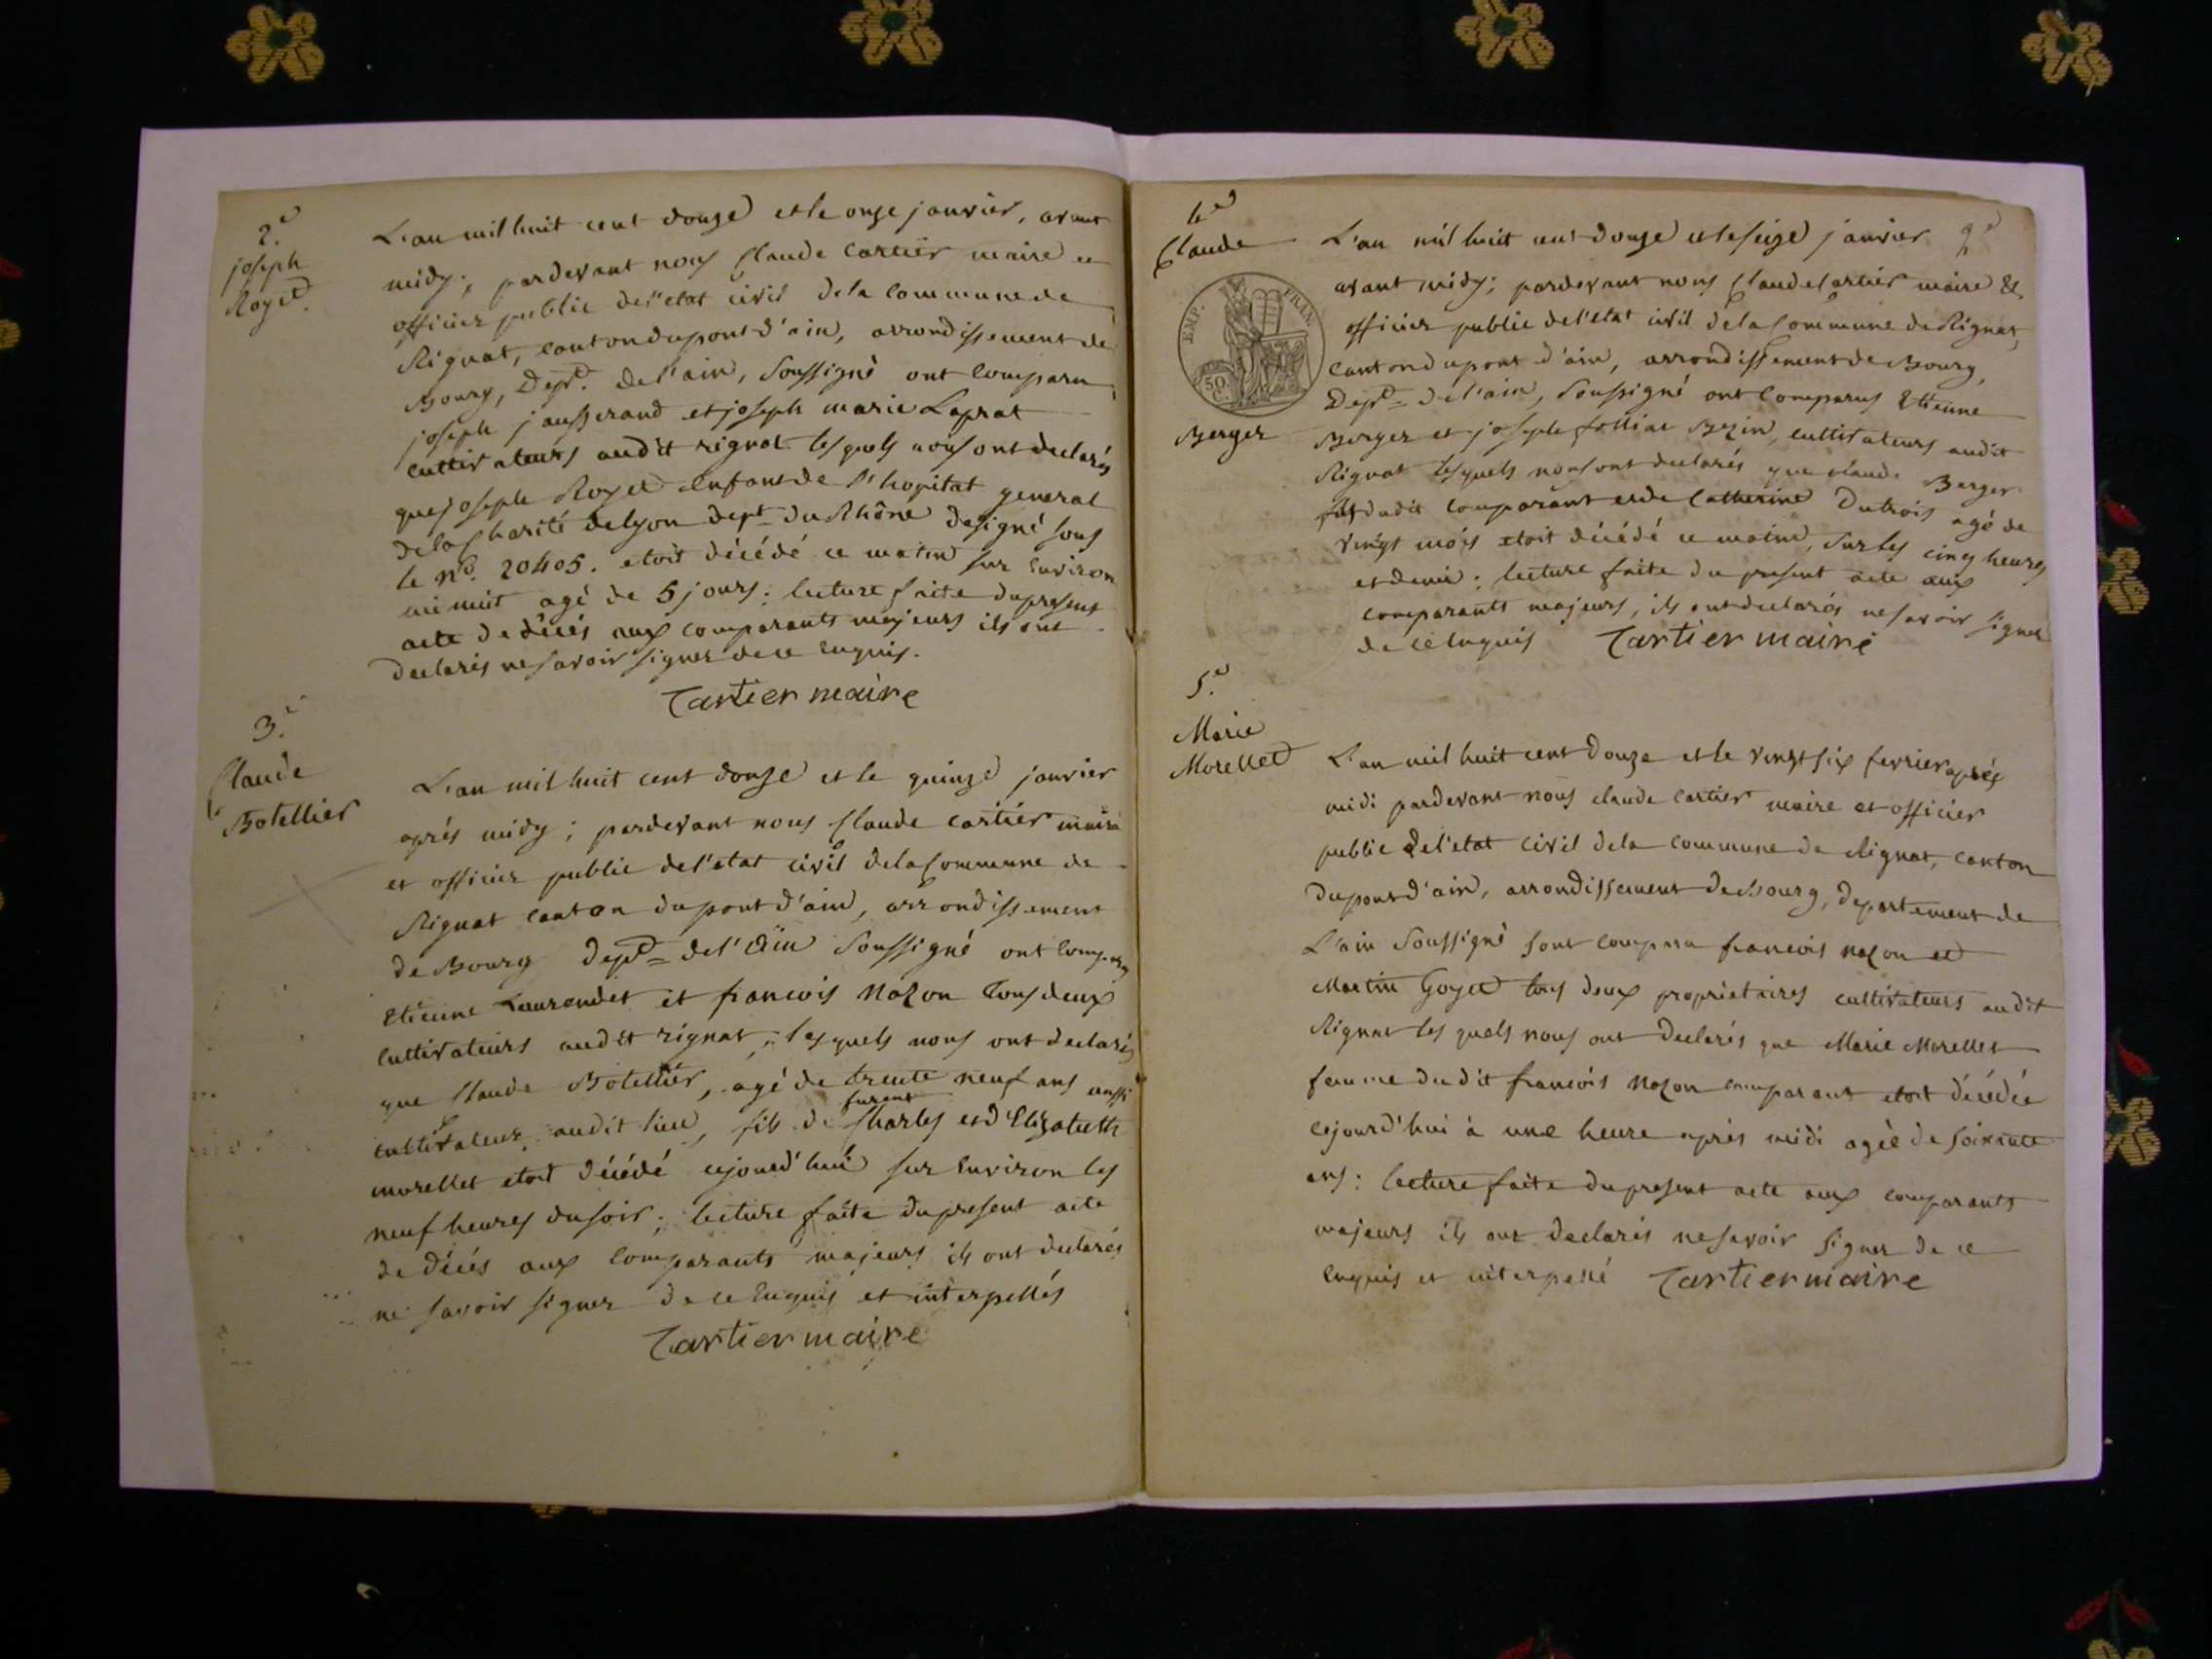 2.e
joseph
Royet.
L'an mil huit cent douze et le onze janvier, avant
midy; pardevant nous Claude Cartier maire et
officier public de l'etat civil de la Commune de
Rignat, canton du pont d'ain, arrondissement de
Bourg, Dept. de l'ain, Soussigné ont Comparu
joseph jausserand et joseph marie Laprat
Cultivateurs audit rignat lesquels nous ont declarés
que joseph Royet Enfant de l'hopital general
de la Charité de lyon dept. du Rhône designé sous
le no. 20405. etoit décédé ce matin sur Environ
minuit agé de 5 jours; lecture faite du present
acte de décés aux comparants majeurs ils ont
declarés ne savoir signer de ce Enquis.
Cartier maire
3.e
Claude
Botellier
L'an mil huit cent douze et le quinze janvier
aprés midy; pardevant nous Claude Cartier maire
et officier public de l'etat civil de la Commune de
Rignat canton du pont d'ain, arrondissement
de Bourg dept= de l'Ain Soussigné ont Comparu
Etienne Laurendet et francois Nazon Tous deux
Cultivateurs audit rignat; lesquels nous ont declarés
que Claude Botellier, agé de trente neuf ans aussi
cultivateur audit lieu, fils de furent Charles et d'Elizabeth
morellet etoit décédé cejourd'hui sur Environ les
neuf heures du soir; lecture faite du present acte
de décés aux Comparants majeurs ils ont declarés
ne savoir signer de ce Enquis et interpellés
Cartier maire
4e
Claude
EMP. FRAN.
50 C.
Berger
2e
L'an mil huit cent douze et le seize janvier
avant midy; pardevant nous Claude Cartier maire &
officier public de l'etat civil de la Commune de Rignat,
Canton du pont d'ain, arrondissement de Bourg,
Dept= de l'ain, Soussigné ont Comparus Etienne
Berger et joseph folliac Bezin, cultivateurs audit
Rignat lesquels nous ont declarés que claude Berger
fils dudit Comparant et de Catherine Dubois agé de
vingt mois etoit décédé ce matin, sur les cinq heures
et demie; lecture faite du present acte aux
comparants majeurs, ils ont declarés ne savoir signer
de ce Enquis Cartier maire
5.e
Marie
Morellet
L'an mil huit cent douze et le vingt six fevrier aprés
midi pardevant nous claude Cartier maire et officier
public de l'etat civil de la commune de Rignat, canton
du pont d'ain, arrondissement de Bourg, departement de
L'ain Soussigné sont comparu francois nazon et
Martin Goyet tous deux propriétaires cultivateurs audit
Rignat les quels nous ont declarés que Marie Morellet
femme du dit francois Nazon comparant etoit décédée
cejourd'hui à une heure après midi agée de soixante
ans: lecture faite du present acte aux comparants
majeurs ils ont declarés ne savoir signer de ce
Enquis et interpellé Cartier maire